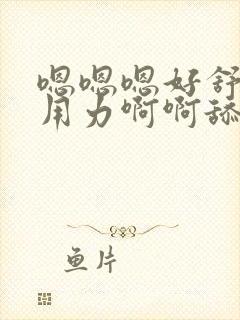 嗯嗯嗯好舒
用力啊啊舔
鱼片